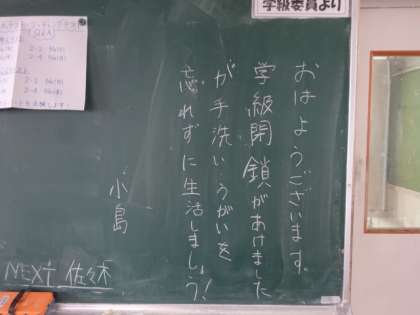 学級委員より
おはようございます。
学級閉鎖があけました
が手洗い、うがいを
忘れずに生活しましょう!
小島
NEXT 佐々木